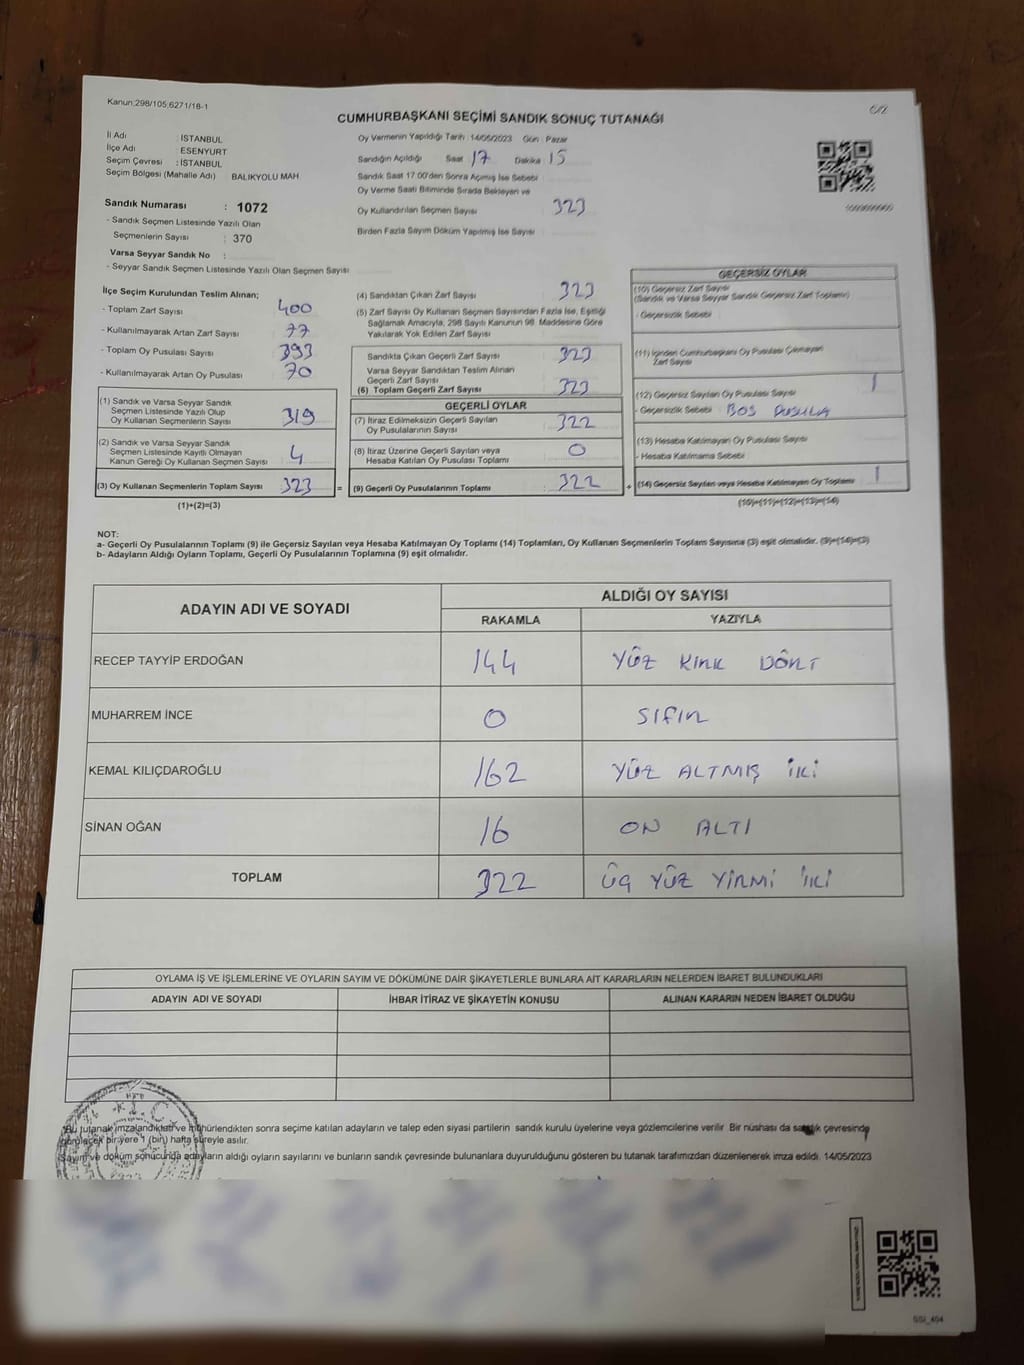 Kanun:298/105;6271/18-1
CUMHURBAŞKANI SEÇİMİ SANDIK SONUÇ TUTANAĞI
İl Adı : İSTANBUL
İlçe Adı : ESENYURT
Seçim Çevresi : İSTANBUL
Seçim Bölgesi (Mahalle Adı) BALIKYOLU MAH.
Sandık Numarası : 1072
- Sandık Seçmen Listesinde Yazılı Olan
Seçmenlerin Sayısı : 370
Varsa Seyyar Sandık No :
- Seyyar Sandık Seçmen Listesinde Yazılı Olan Seçmen Sayısı
Oy Vermenin Yapıldığı Tarih : 14/05/2023 Gün : Pazar
Sandığın Açıldığı Saat 17 Dakika 15
Sandık Saat 17:00'den Sonra Açımış İse Sebebi
Oy Verme Saati Bitiminde Sırada Bekleyen ve
Oy Kullandırılan Seçmen Sayısı 323
Birden Fazla Sayım Döküm Yapılmış İse Sayısı
İlçe Seçim Kurulundan Teslim Alınan;
- Toplam Zarf Sayısı 400
- Kullanılmayarak Artan Zarf Sayısı 77
- Toplam Oy Pusulası Sayısı 393
- Kullanılmayarak Artan Oy Pusulası 70
(1) Sandık ve Varsa Seyyar Sandık
Seçmen Listesinde Yazılı Olup
Oy Kullanan Seçmenlerin Sayısı 319
(2) Sandık ve Varsa Seyyar Sandık
Seçmen Listesinde Kayıtlı Olmayan
Kanun Gereği Oy Kullanan Seçmen Sayısı 4
(3) Oy Kullanan Seçmenlerin Toplam Sayısı 323 =
(1)+(2)=(3)
(4) Sandıktan Çıkan Zarf Sayısı 323
(5) Zarf Sayısı Oy Kullanan Seçmen Sayısından Fazla İse, Eşitliği
Sağlamak Amacıyla, 298 Sayılı Kanunun 98. Maddesine Göre
Yakılarak Yok Edilen Zarf Sayısı
Sandıkta Çıkan Geçerli Zarf Sayısı 323
Varsa Seyyar Sandıktan Teslim Alınan
Geçerli Zarf Sayısı
(6) Toplam Geçerli Zarf Sayısı 323
GEÇERLİ OYLAR
(7) İtiraz Edilmeksizin Geçerli Sayılan
Oy Pusulalarının Sayısı 322
(8) İtiraz Üzerine Geçerli Sayılan veya
Hesaba Katılan Oy Pusulası Toplamı 0
(9) Geçerli Oy Pusulalarının Toplamı 322 +
GEÇERSİZ OYLAR
(10) Geçersiz Zarf Sayısı
(Sandık ve Varsa Seyyar Sandık Geçersiz Zarf Toplamı)
- Geçersizlik Sebebi
(11) İçinden Cumhurbaşkanı Oy Pusulası Çıkmayan
Zarf Sayısı
(12) Geçersiz Sayılan Oy Pusulası Sayısı 1
- Geçersizlik Sebebi : BOŞ PUSULA
(13) Hesaba Katılmayan Oy Pusulası Sayısı
- Hesaba Katılmama Sebebi
(14) Geçersiz Sayılan veya Hesaba Katılmayan Oy Toplamı 1
(10)+(11)+(12)+(13)=(14)
NOT:
a- Geçerli Oy Pusulalarının Toplamı (9) ile Geçersiz Sayılan veya Hesaba Katılmayan Oy Toplamı (14) Toplamları, Oy Kullanan Seçmenlerin Toplam Sayısına (3) eşit olmalıdır. (9)+(14)=(3)
b- Adayların Aldığı Oyların Toplamı, Geçerli Oy Pusulalarının Toplamına (9) eşit olmalıdır.
ADAYIN ADI VE SOYADI ALDIĞI OY SAYISI
RAKAMLA YAZIYLA
RECEP TAYYİP ERDOĞAN 144 YÜZ KIRK DÖRT
MUHARREM İNCE 0 SIFIR
KEMAL KILIÇDAROĞLU 162 YÜZ ALTMIŞ İKİ
SİNAN OĞAN 16 ON ALTI
TOPLAM 322 ÜÇ YÜZ YİRMİ İKİ
OYLAMA İŞ VE İŞLEMLERİNE VE OYLARIN SAYIM VE DÖKÜMÜNE DAİR ŞİKAYETLERLE BUNLARA AİT KARARLARIN NELERDEN İBARET BULUNDUKLARI
ADAYIN ADI VE SOYADI İHBAR İTİRAZ VE ŞİKAYETİN KONUSU ALINAN KARARIN NEDEN İBARET OLDUĞU
T.C.
Bu tutanak imzalandıktan ve mühürlendikten sonra seçime katılan adayların ve talep eden siyasi partilerin sandık kurulu üyelerine veya gözlemcilerine verilir. Bir nüshası da sandık çevresinde
görülecek bir yere 1 (bir) hafta süreyle asılır.
Sayım ve döküm sonucunda adayların aldığı oyların sayılarını ve bunların sandık çevresinde bulunanlara duyurulduğunu gösteren bu tutanak tarafımızdan düzenlenerek imza edildi. 14/05/2023